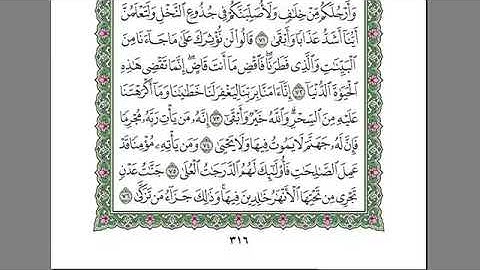 وَأَرْجُلَكُم مِّنْ خِلَٰفٍ وَلَأُصَلِّبَنَّكُمْ فِى جُذُوعِ ٱلنَّخْلِ وَلَتَعْلَمُنَّ
أَيُّنَآ أَشَدُّ عَذَابًا وَأَبْقَىٰ ٧١ قَالُوا۟ لَن نُّؤْثِرَكَ عَلَىٰ مَا جَآءَنَا مِنَ
ٱلْبَيِّنَٰتِ وَٱلَّذِى فَطَرَنَا ۖ فَٱقْضِ مَآ أَنتَ قَاضٍ ۖ إِنَّمَا تَقْضِى هَٰذِهِ
ٱلْحَيَوٰةَ ٱلدُّنْيَآ ٧٢ إِنَّآ ءَامَنَّا بِرَبِّنَا لِيَغْفِرَ لَنَا خَطَٰيَٰنَا وَمَآ أَكْرَهْتَنَا
عَلَيْهِ مِنَ ٱلسِّحْرِ ۗ وَٱللَّهُ خَيْرٌ وَأَبْقَىٰٓ ٧٣ إِنَّهُۥ مَن يَأْتِ رَبَّهُۥ مُجْرِمًا
فَإِنَّ لَهُۥ جَهَنَّمَ لَا يَمُوتُ فِيهَا وَلَا يَحْيَىٰ ٧٤ وَمَن يَأْتِهِۦ مُؤْمِنًا قَدْ
عَمِلَ ٱلصَّٰلِحَٰتِ فَأُو۟لَٰٓئِكَ لَهُمُ ٱلدَّرَجَٰتُ ٱلْعُلَىٰ ٧٥ جَنَّٰتُ عَدْنٍ
تَجْرِى مِن تَحْتِهَا ٱلْأَنْهَٰرُ خَٰلِدِينَ فِيهَا ۚ وَذَٰلِكَ جَزَآءُ مَن تَزَكَّىٰ ٧٦
٣١٦